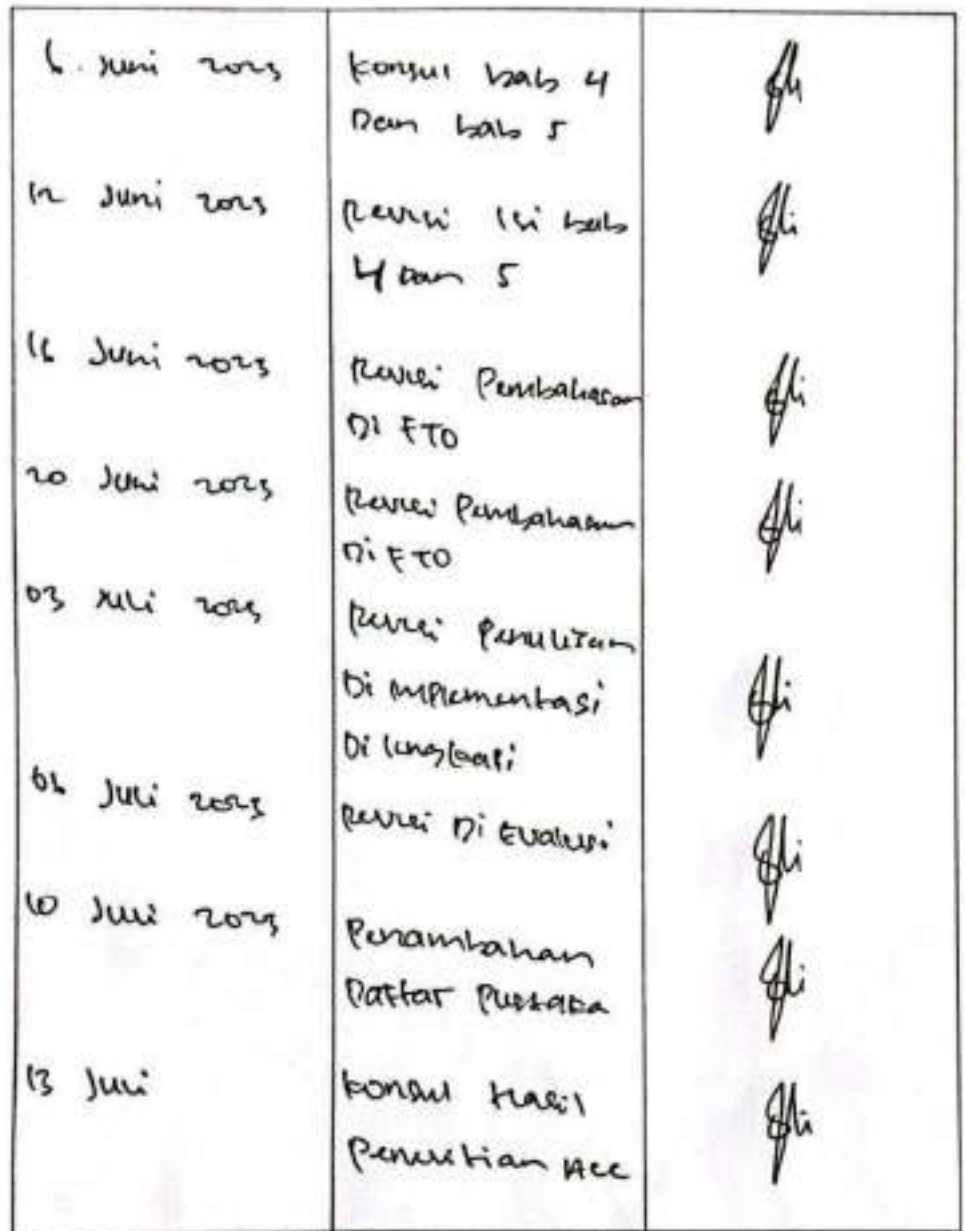 6 Juni 2023
Konsul bab 4
Dan bab 5
12 Juni 2023
Revisi Isi bab
4 Dan 5
16 Juni 2023
Revisi Pembahasan
Di FTO
20 Juni 2023
Revisi Pembahasan
Di FTO
03 Juli 2023
Revisi Penulisan
Di implementasi
Di lengkapi
Juli 2023
Revisi Di Evalusi
10 Juli 2023
Penambahan
Daftar Pustaka
13 Juli
Konsul Hasil
Penelitian Acc